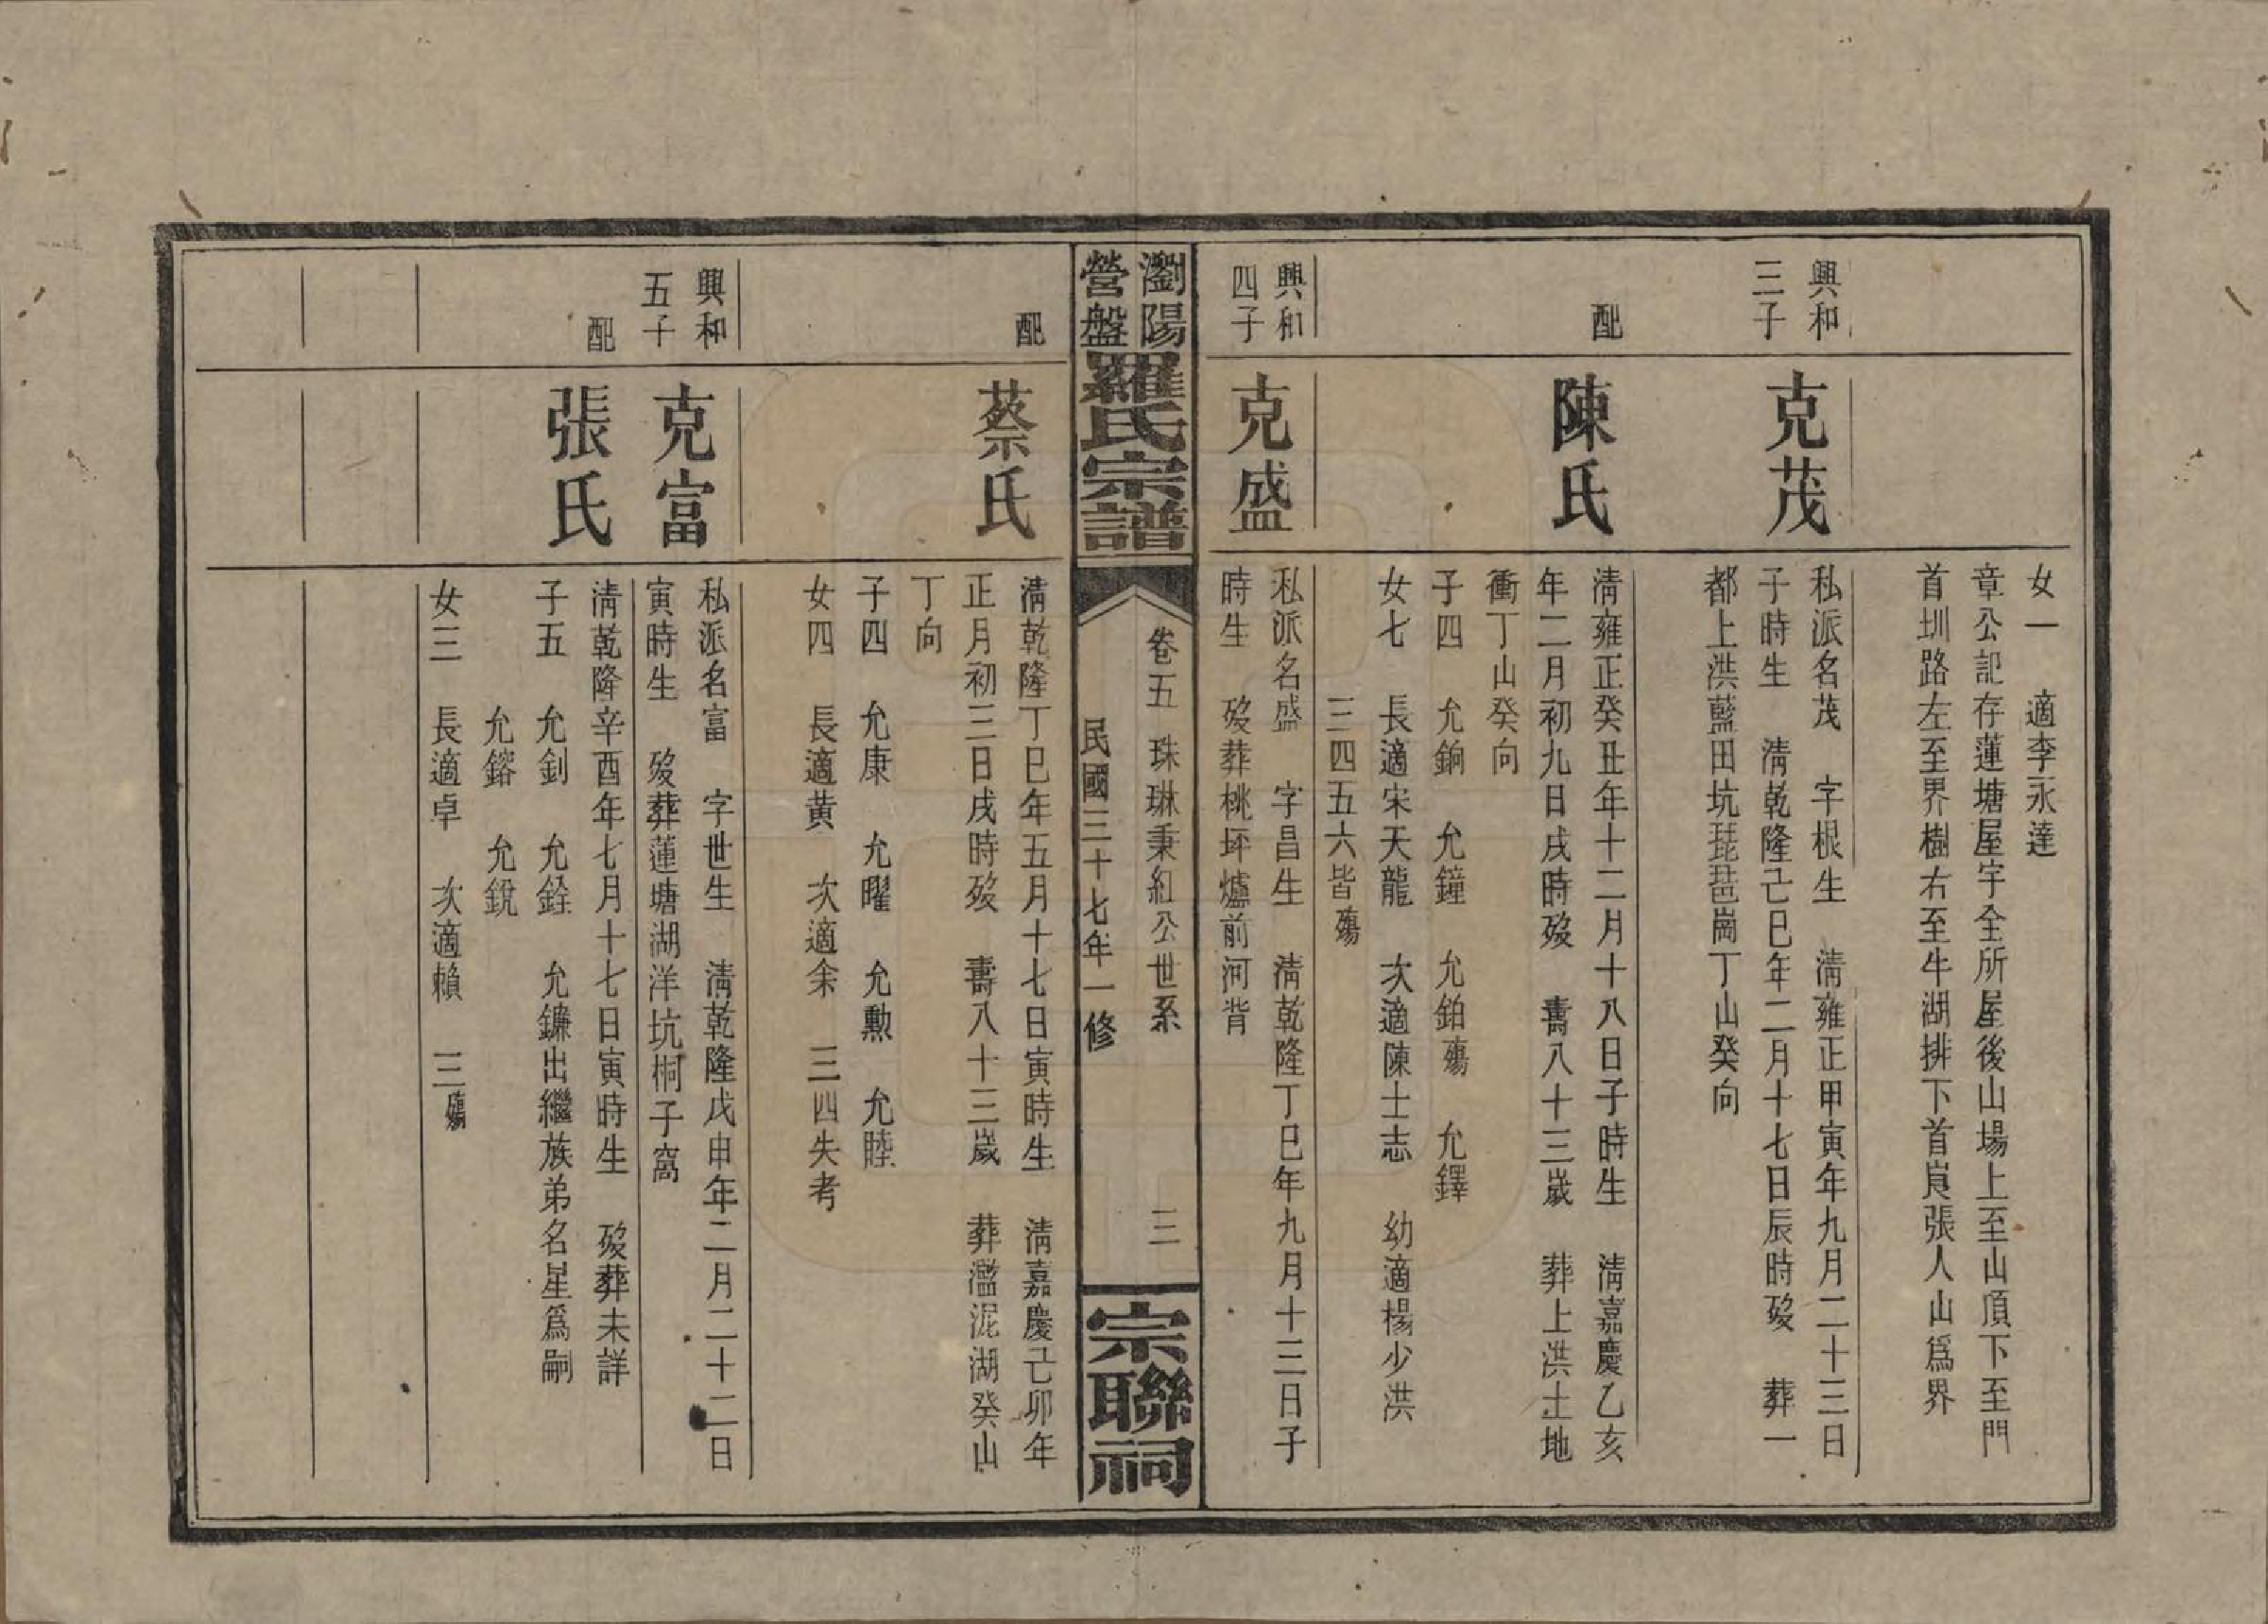 女一　適李永達
章公記存蓮塘屋宇全所屋後山場上至山頂下至門
首圳路左至界樹右至牛湖排下首崀張人山爲界
興和
三子
克茂
私派名茂　字根生　淸雍正甲寅年九月二十三日
子時生　淸乾隆己巳年二月十七日辰時歿　葬一
都上洪藍田坑琵琶崗丁山癸向
配
陳氏
淸雍正癸丑年十二月十八日子時生　淸嘉慶乙亥
年二月初九日戌時歿　壽八十三歲　葬上洪土地
衝丁山癸向
子四　允銄　允鐘　允鉑殤　允鐸
女七　長適宋天龍　次適陳士志　幼適楊少洪
三四五六皆殤
興和
四子
克盛
私派名盛　字昌生　淸乾隆丁巳年九月十三日子
時生　歿葬桃坪爐前河背
瀏陽
營盤
羅氏宗譜
卷五　珠琳秉紅公世系　三
民國三十七年一修
宗聯祠
配
蔡氏
淸乾隆丁巳年五月十七日寅時生　淸嘉慶己卯年
正月初三日戌時歿　壽八十三歲　葬濫泥湖癸山
丁向
子四　允康　允曜　允勳　允睦
女四　長適黃　次適余　三四失考
興和
五子
克富
私派名富　字世生　淸乾隆戊申年二月二十二日
寅時生　歿葬蓮塘湖洋坑桐子窩
配
張氏
淸乾隆辛酉年七月十七日寅時生　歿葬未詳
子五　允釗　允銓　允鐮出繼族弟名星爲嗣
允鎔　允銳
女三　長適卓　次適賴　三殤